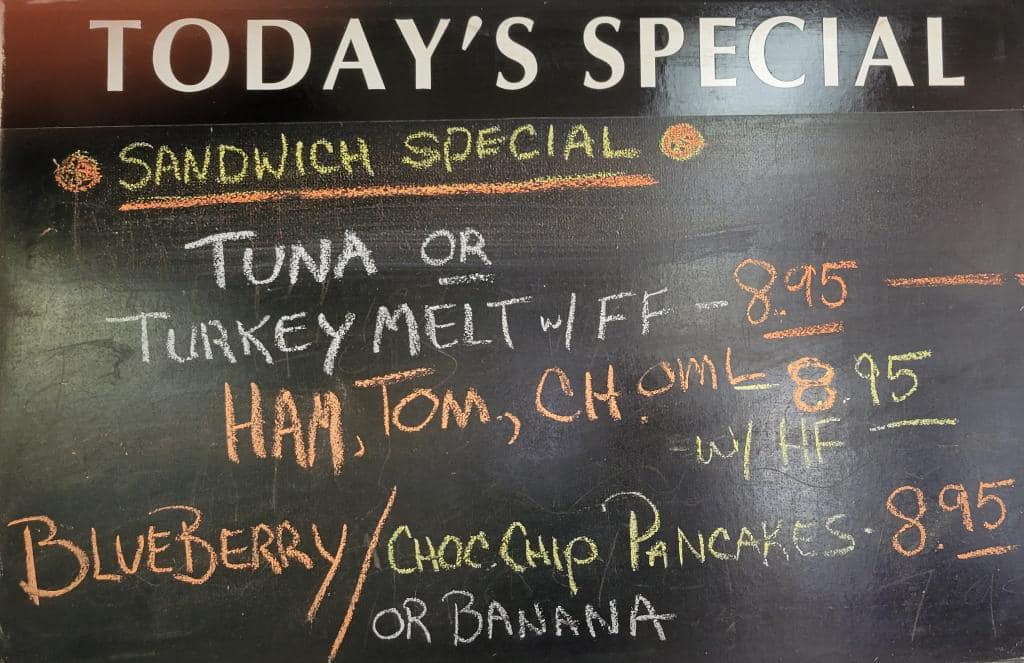 TODAY'S SPECIAL
SANDWICH SPECIAL
TUNA OR
TURKEY MELT w/ FF - 8.95
HAM, TOM, CH. OML 8.95
- w/ HF
BLUEBERRY/CHOC.CHIP PANCAKES - 8.95
OR BANANA